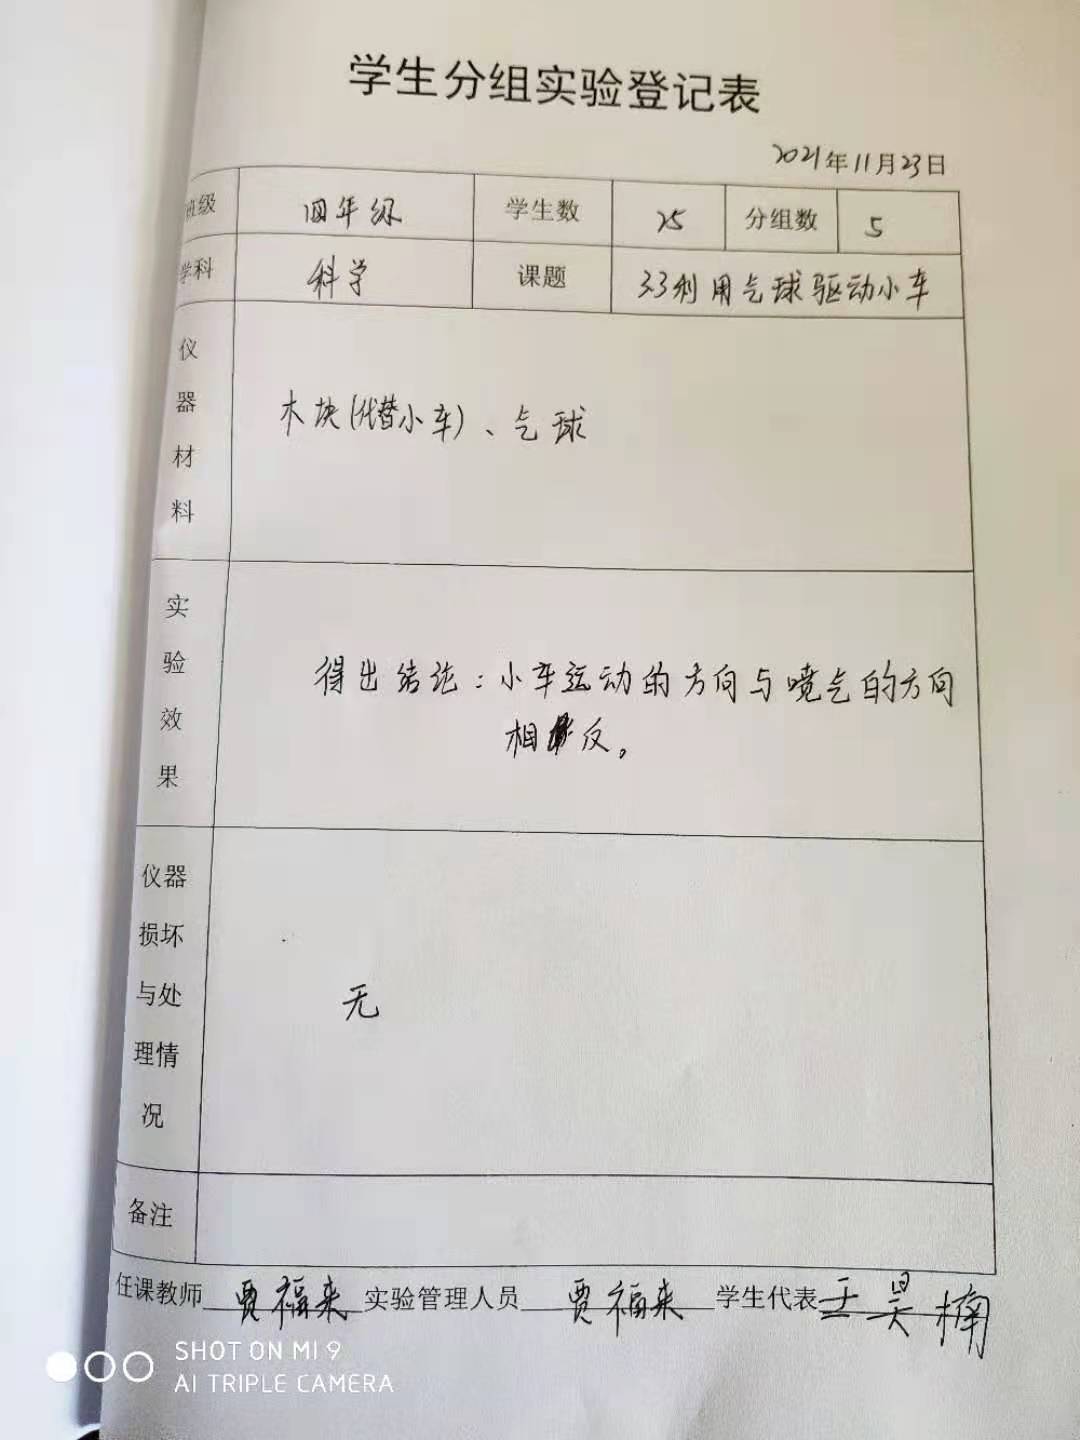 学生分组实验登记表
2021年11月23日
班级 四年级 学生数 25 分组数 5
学科 科学 课题 3.3利用气球驱动小车
仪器材料 木块(代替小车)、气球
实验效果 得出结论:小车运动的方向与喷气的方向
相反。
仪器损坏与处理情况 无
备注
任课教师 贾福来 实验管理人员 贾福来 学生代表 王昊楠
SHOT ON MI 9
AI TRIPLE CAMERA